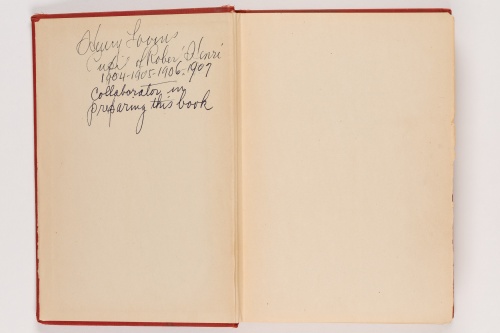 Henry Lovins
Pupil of Robert Henri
1904-1905-1906-1907
Collaborator in
preparing this book